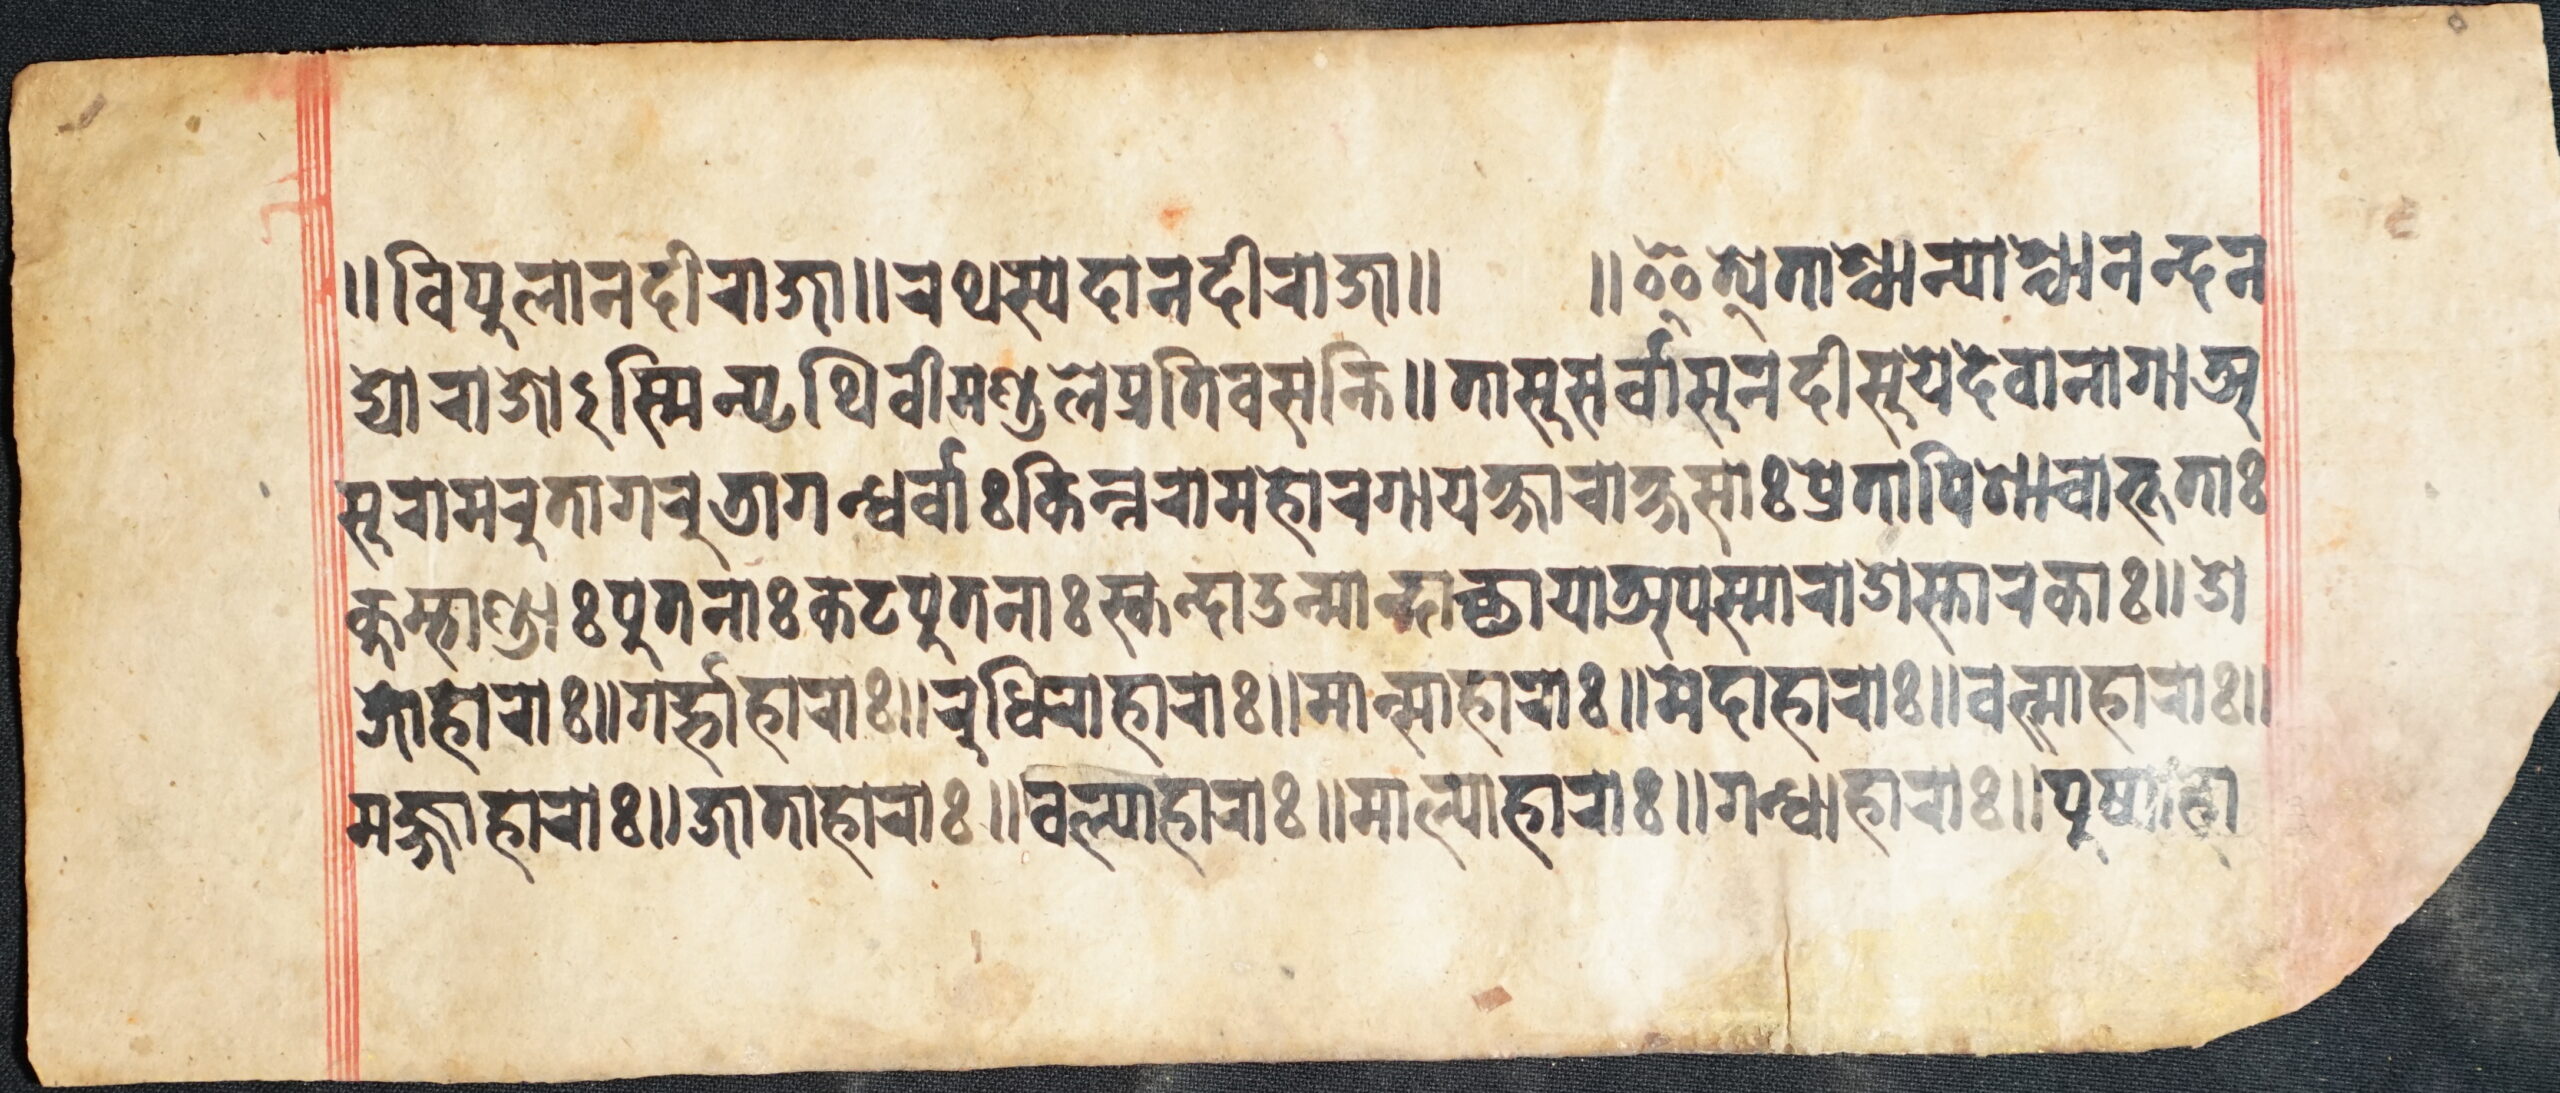 ॥विपुलानदीराजा॥रथस्यदानदीराजा॥ ॥इत्येताश्चान्याश्चानन्दन
द्योराज्ञोऽस्मिन्पृथिवीमण्डलेप्रतिवसन्ति॥तासुसर्वासुनदीसुयेदेवानागाअ
सुरामरुतागरुडागन्धर्वाःकिन्नरामहोरगायक्षाराक्षसाःप्रेतापिशाचाभूताः
कुम्भाण्डाःपुतनाःकटपुतनाःस्कन्दाउन्मादाच्छायाअपस्माराओस्तारकाः॥ओ
जोहाराः॥गर्भाहाराः॥रुधिराहाराः॥मान्साहाराः॥मेदाहाराः॥
मज्जाहाराः॥जाताहाराः॥वल्याहाराः॥माल्याहाराः॥गन्धाहाराः॥पुष्पाहा